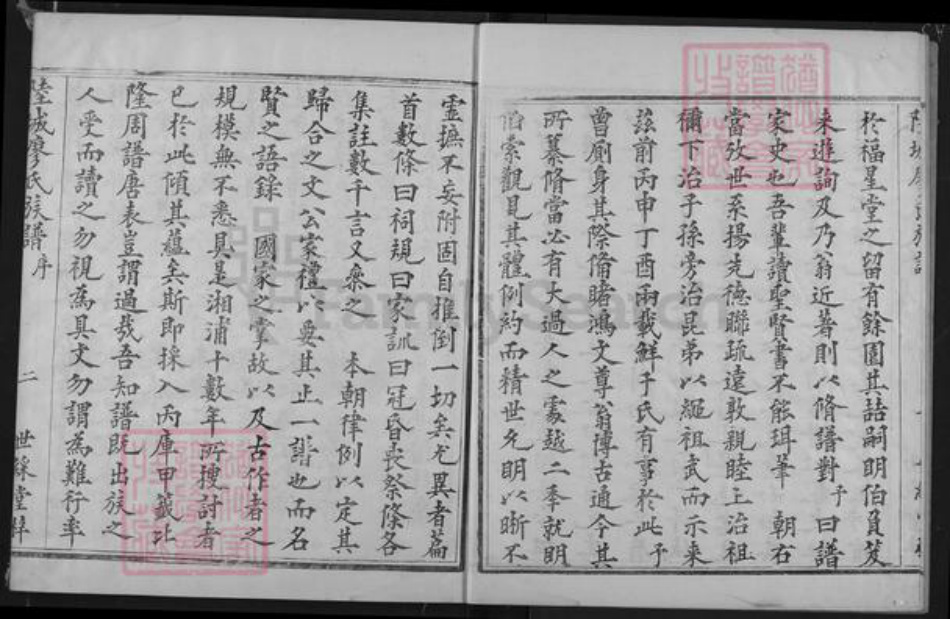 於福星堂之留有餘園其喆嗣明伯負笈
來遊詢及乃翁近著則以脩譜對予曰譜
家史也吾輩讀聖賢書不能珥筆 朝右
當攷世系揚先德聯疏遠敦親睦上治祖
禰下治子孫旁治昆弟以繩祖武而示来
茲前丙申丁酉兩載鮮于氏有事於此予
曾厠身其際俻睹鴻文尊翁博古通今其
所纂脩當必有大過人之處越二季就明
伯索觀見其體例約而精世允明以晰不
靈摭不妄附固自推倒一切矣尤異者篇
首數條曰祠規曰家訓曰冠昏喪祭條各
集註數千言又桼之 本朝律例以定其
歸合之文公家禮以要其止一譜也而名
賢之語錄 國家之掌故以及古作者之
規模無不悉具是湘浦十數年所搜討者
已於此傾其蘊矣斯即採入丙庫甲籤比
隆周譜唐表豈謂過哉吾知譜既出族之
人受而讀之勿視為具文勿謂為難行率
陸城廖氏族譜序 二 世綵堂梓
FamilySearch